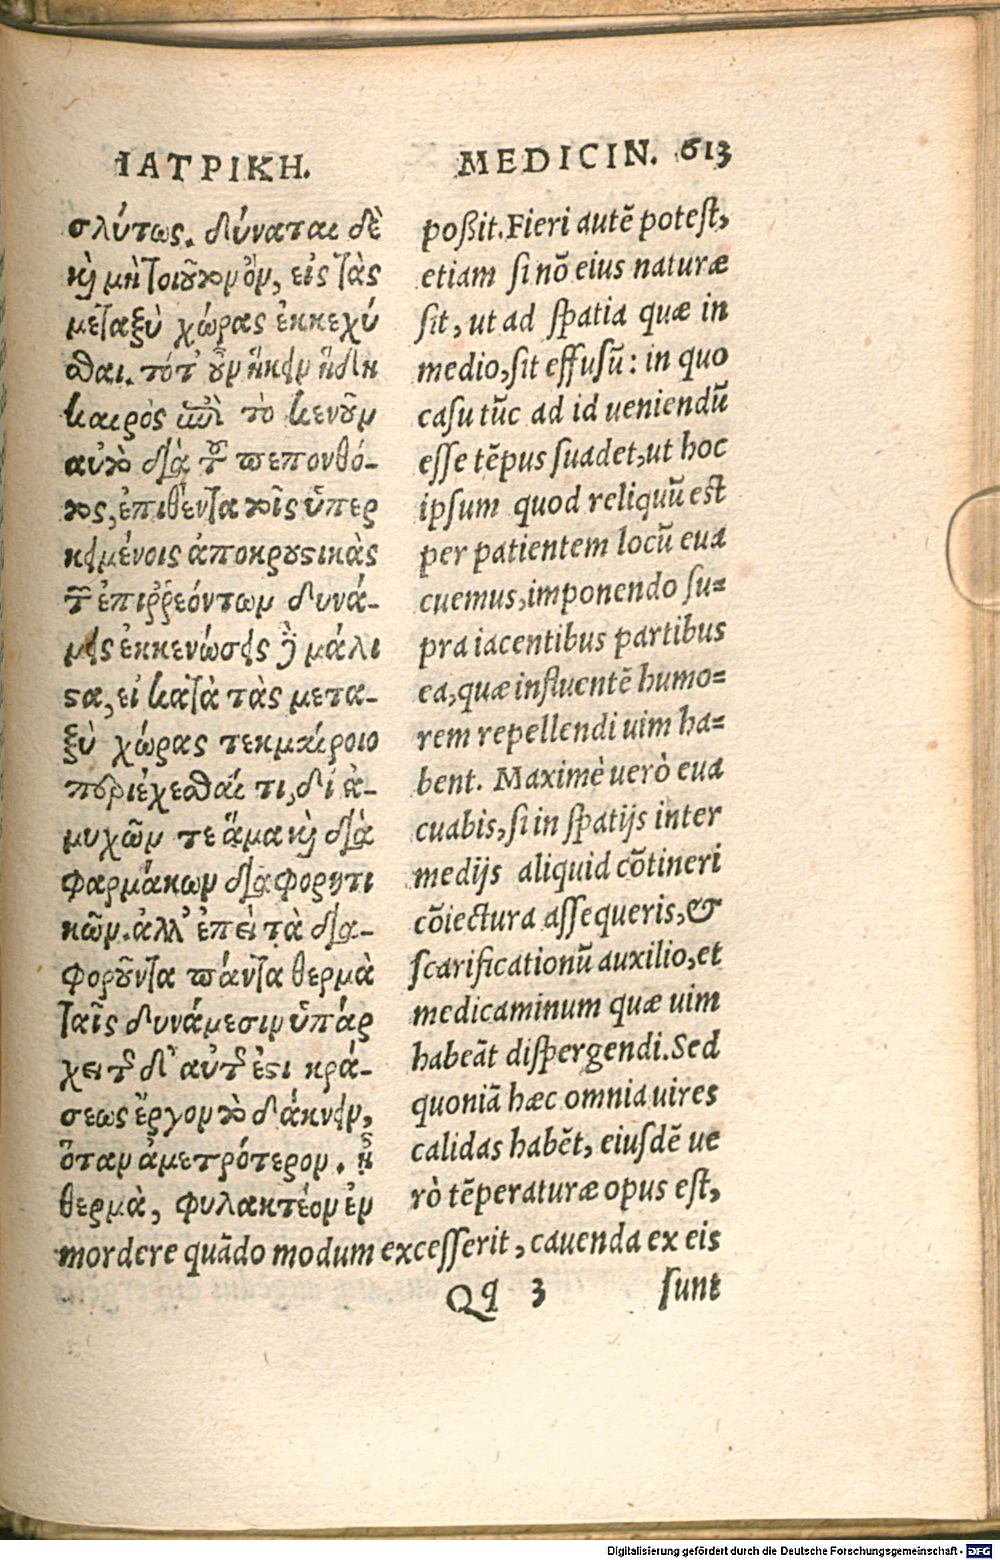 ΙΑΤΡΙΚΗ.
σλύτως. δύναται δὲ
καὶ μὴ τοιοῦτον ὂν, εἰς τὰς
μεταξὺ χώρας ἐκκεχύ
σθαι. τότ' οὖν ἥκειν ἤδη
καιρὸς ἐπὶ τὸ κενοῦν
αὐτὸ διὰ τοῦ πεπονθό-
τος, ἐπιθέντα τοῖς ὑπερ
κειμένοις ἀποκρουστικὰς
τῶν ἐπιῤῥεόντων δυνά-
μεις ἐκκενώσεις δὲ μάλι
στα, εἰ κατὰ τὰς μετα-
ξὺ χώρας τεκμαίροιο
περιέχεσθαί τι, δι' ἀ-
μυχῶν τε ἅμα καὶ διὰ
φαρμάκων διαφορητι
κῶν. ἀλλ' ἐπεὶ τὰ δια-
φοροῦντα πάντα θερμὰ
ταῖς δυνάμεσιν ὑπάρ
χει τῆς δ' αὐτῆς ἐστι κρά-
σεως ἔργον τὸ δάκνειν,
ὅταν ἀμετρότερον. ᾖ
θερμὰ, φυλακτέον ἐν
MEDICIN. 613
poßit. Fieri autē potest,
etiam si nō eius naturæ
sit, ut ad spatia quæ in
medio, sit effusū: in quo
casu tūc ad id ueniendū
esse tēpus suadet, ut hoc
ipsum quod reliquū est
per patientem locū eua
cuemus, imponendo su=
pra iacentibus partibus
ea, quæ influentē humo=
rem repellendi uim ha=
bent. Maximè uerò eua
cuabis, si in spatijs inter
medijs aliquid cōtineri
cōiectura assequeris, &
scarificationū auxilio, et
medicaminum quæ uim
habeāt dispergendi. Sed
quoniā hæc omnia uires
calidas habēt, eiusdē ue
rò tēperaturæ opus est,
mordere quādo modum excesserit, cauenda ex eis
Qq 3 sunt
Digitalisierung gefördert durch die Deutsche Forschungsgemeinschaft - DFG